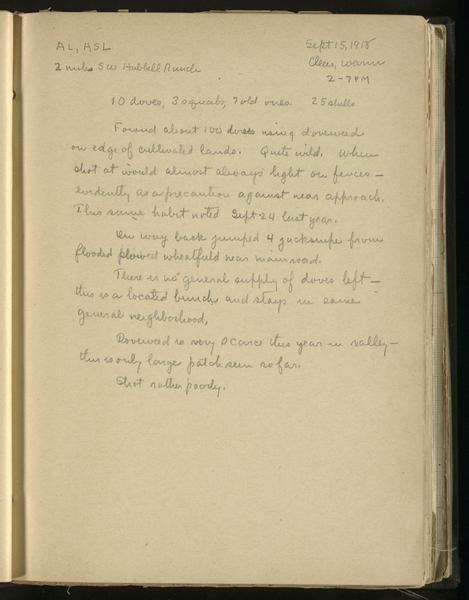 AL, HSL
Sept 15, 1918
2 miles SW Hubbell Ranch
Clear, warm
2-7 PM
10 doves, 3 squabs, 7 old ones. 25 shells
Found about 100 doves using doveweed
on edge of cultivated lands. Quite wild. When
shot at would almost always light on fences -
evidently as a precaution against near approach.
This same habit noted Sept 24 last year.
On way back jumped 4 jacksnipe from
flooded plowed wheatfield near main road.
There is no "general supply" of doves left -
this is a located bunch and stays in same
general neighborhood.
Doveweed is very scarce this year in valley -
this is only large patch seen so far.
Shot rather poorly.